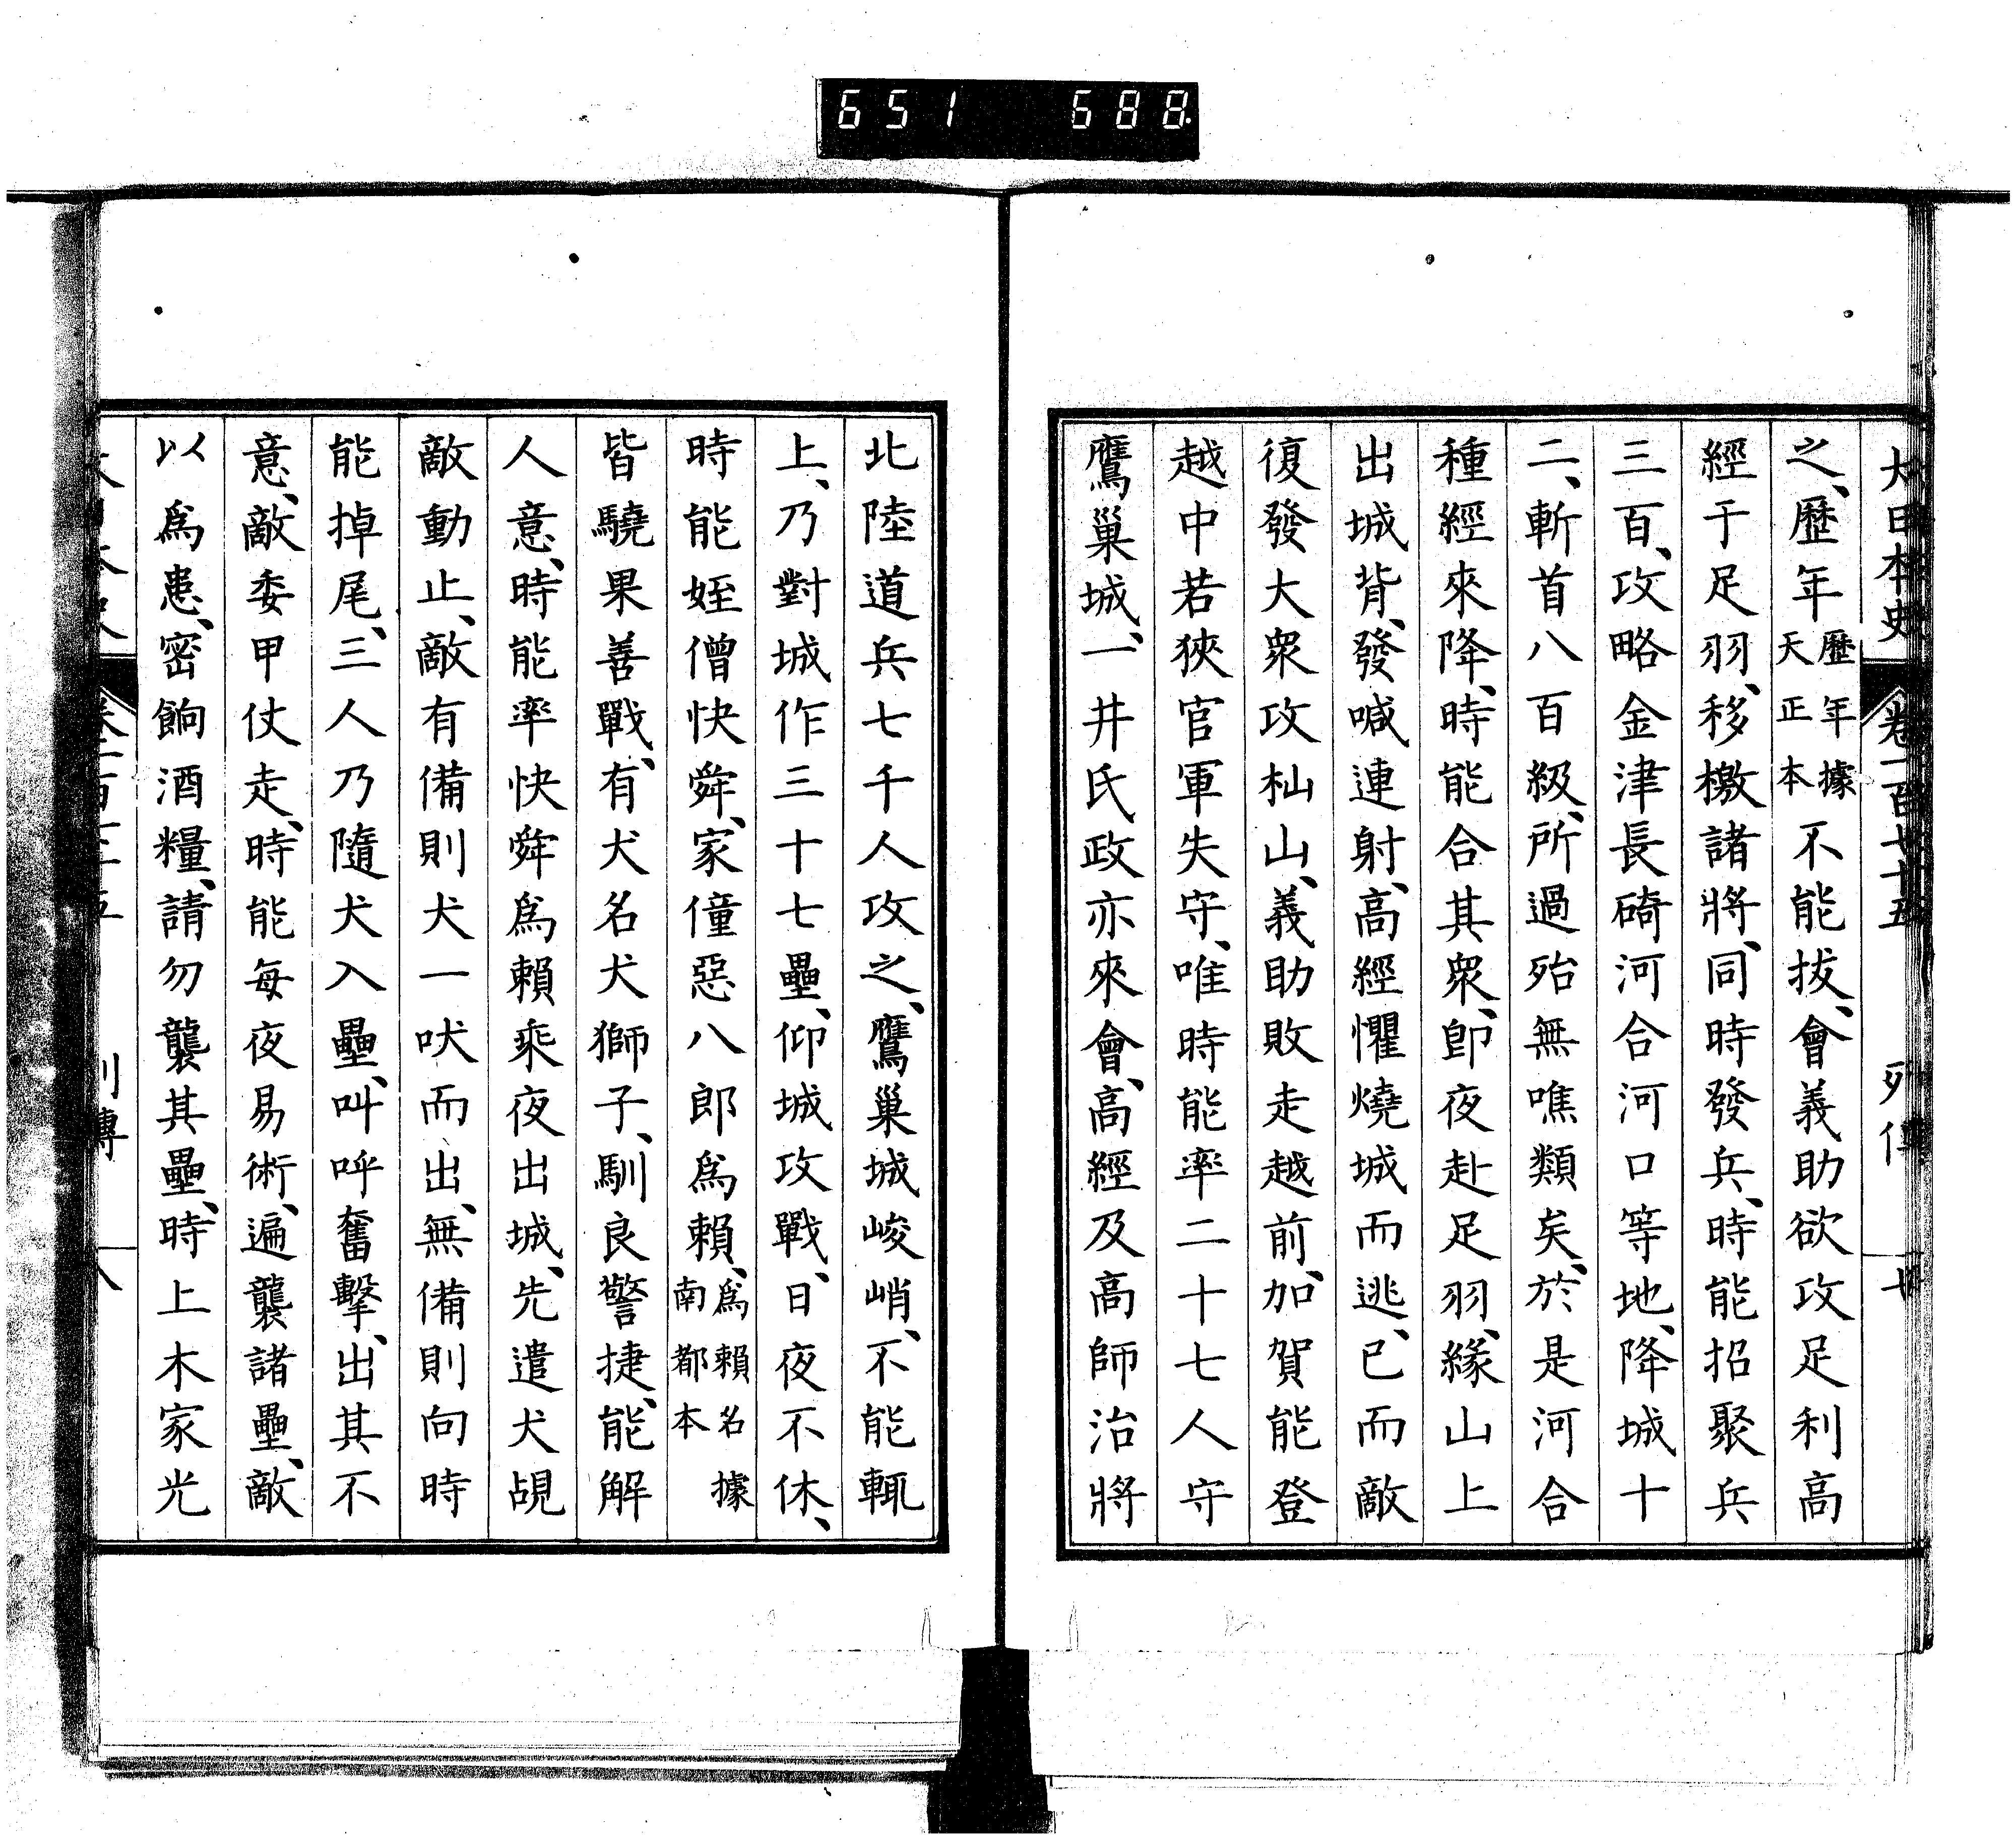 651 688
大日本史 卷一百七十五 列傳 十
之、歷年歷年據天正本不能拔、會義助欲攻足利高
經于足羽、移檄諸將、同時發兵、時能招聚兵
三百、攻略金津長碕河合河口等地、降城十
二、斬首八百級、所過殆無噍類矣、於是河合
種經來降、時能合其衆、卽夜赴足羽、緣山上
出城背、發喊連射、高經懼燒城而逃、已而敵
復發大衆攻杣山、義助敗走越前、加賀能登
越中若狹官軍失守、唯時能率二十七人守
鷹巢城、一井氏政亦來會、高經及高師治將
北陸道兵七千人攻之、鷹巢城峻峭、不能輒
上、乃對城作三十七壘、仰城攻戰、日夜不休、
時能姪僧快舜、家僮惡八郎爲賴、爲賴名據南都本
皆驍果善戰、有犬名犬獅子、馴良警捷、能解
人意、時能率快舜爲賴乘夜出城、先遣犬覘
敵動止、敵有備則犬一吠而出、無備則向時
能掉尾、三人乃隨犬入壘、叫呼奮擊、出其不
意、敵委甲仗走、時能每夜易術、遍襲諸壘、敵
以爲患、密餉酒糧、請勿襲其壘、時上木家光